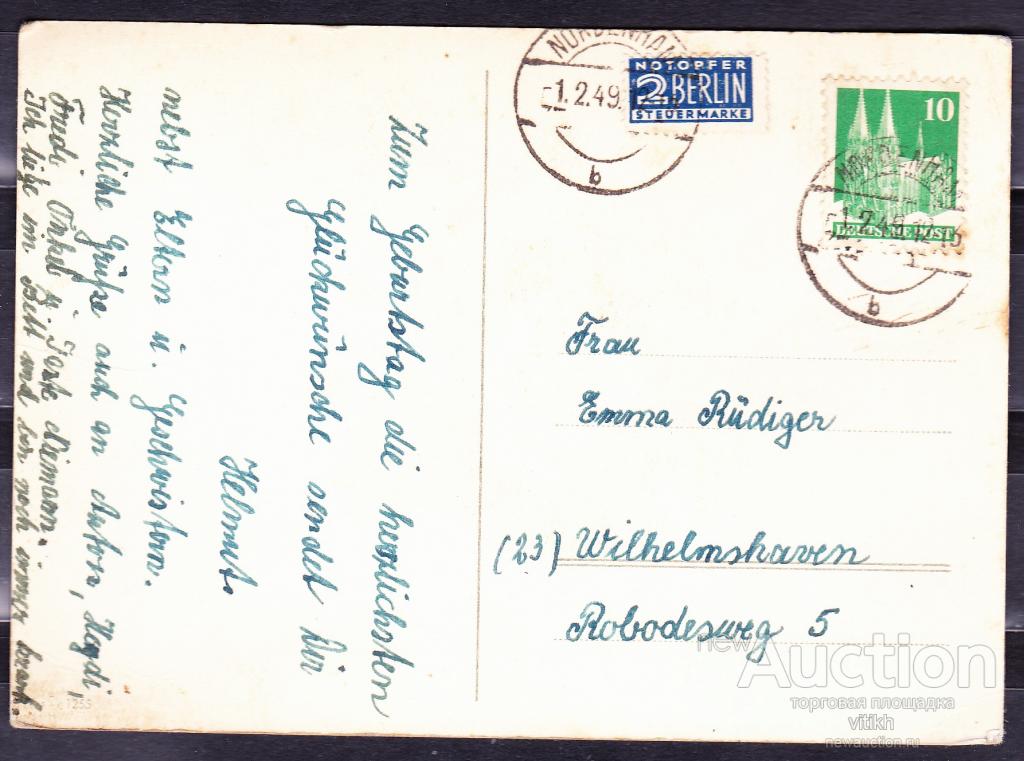 Zum Geburtstag die herzlichsten
Glückwünsche sendet Dir
Helmut.
nebst Eltern u. Geschwistern.
Herzliche Grüße auch an Anton, Heydi,
Friedi Onkel u. Tante
Ich liege im Bett und bin noch immer krank.
1255
NORDENHAM
1.2.49.12
b
NOTOPFER
2 BERLIN
STEUERMARKE
10
DEUTSCHE POST
NORDENHAM
1.2.49.12
b
Frau
Emma Rüdiger
(23) Wilhelmshaven
Robodesweg 5
newAuction
торговая площадка
vitikh
newauction.ru